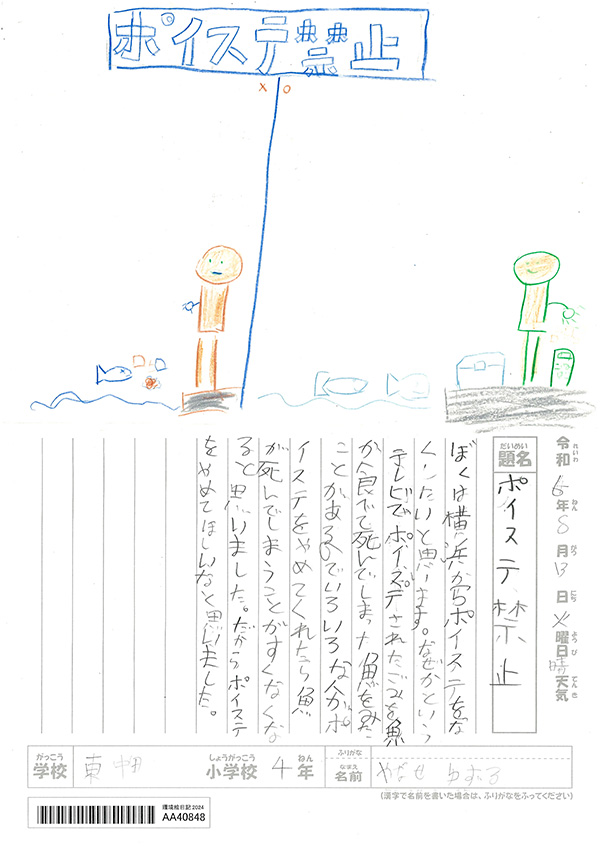 ポイステ禁止
× ○
令和6年8月13日火曜日 天気
れいわ ねん がつ にち ようび てんき
だいめい
題名 ポイステ禁止
ぼくは横浜からポイステをな
くしたいと思います。なぜかというと
テレビでポイステされたごみを魚
が食べて死んでしまった魚をみた
ことがあるのでいろいろな人がポ
イステをやめてくれたら魚
が死んでしまうことがすくなくな
ると思いました。だからポイステ
をやめてほしいなと思いました。
がっこう しょうがっこう ねん ふりがな
学校 東 小学校 4年
なまえ
名前 やなせ
(漢字で名前を書いた場合は、ふりがなをふってください)
環境絵日記2024
AA40848